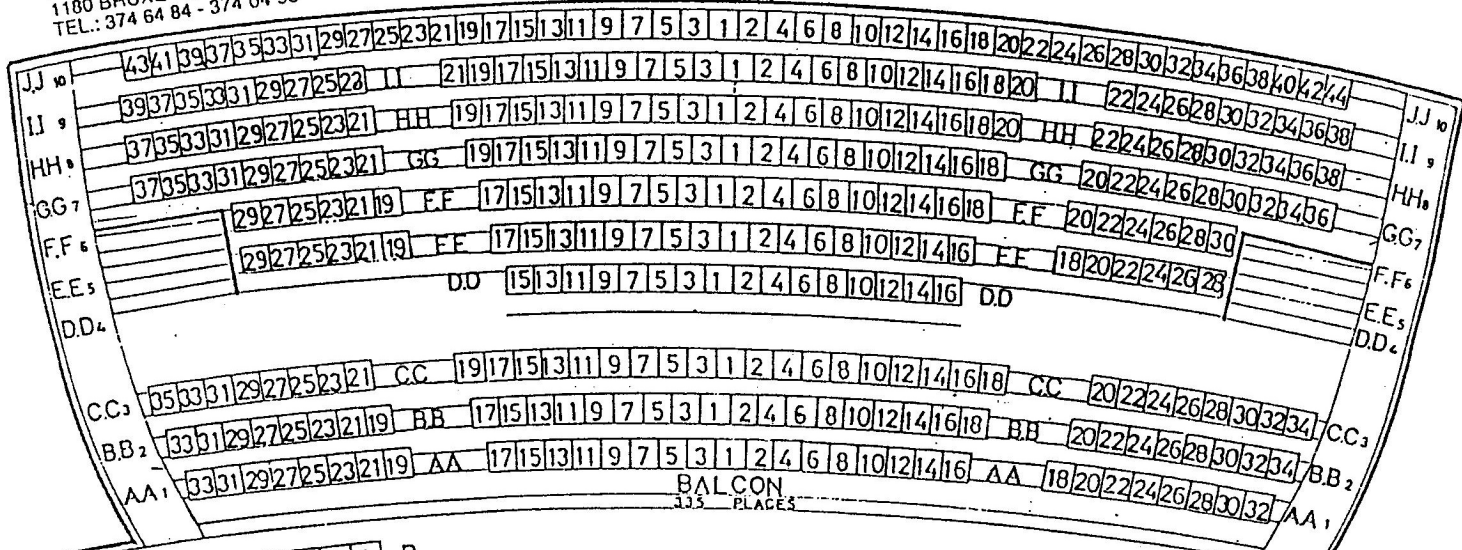 1180
TEL.: 374 64 84 - 374 64
J.J 10 43 41 39 37 35 33 31 29 27 25 23 21 19 17 15 13 11 9 7 5 3 1 2 4 6 8 10 12 14 16 18 20 22 24 26 28 30 32 34 36 38 40 42 44 J.J 10
I.I 9 39 37 35 33 31 29 27 25 23 I.I 21 19 17 15 13 11 9 7 5 3 1 2 4 6 8 10 12 14 16 18 20 I.I 22 24 26 28 30 32 34 36 38 I.I 9
HH 8 37 35 33 31 29 27 25 23 21 HH 19 17 15 13 11 9 7 5 3 1 2 4 6 8 10 12 14 16 18 20 HH 22 24 26 28 30 32 34 36 38 HH 8
GG 7 37 35 33 31 29 27 25 23 21 GG 19 17 15 13 11 9 7 5 3 1 2 4 6 8 10 12 14 16 18 GG 20 22 24 26 28 30 32 34 36 GG 7
F.F 6 29 27 25 23 21 19 F.F 17 15 13 11 9 7 5 3 1 2 4 6 8 10 12 14 16 18 F.F 20 22 24 26 28 30 F.F 6
E.E 5 29 27 25 23 21 19 E.E 17 15 13 11 9 7 5 3 1 2 4 6 8 10 12 14 16 E.E 18 20 22 24 26 28 E.E 5
D.D 4 D.D 15 13 11 9 7 5 3 1 2 4 6 8 10 12 14 16 D.D D.D 4
C.C 3 35 33 31 29 27 25 23 21 C.C 19 17 15 13 11 9 7 5 3 1 2 4 6 8 10 12 14 16 18 C.C 20 22 24 26 28 30 32 34 C.C 3
B.B 2 33 31 29 27 25 23 21 19 B.B 17 15 13 11 9 7 5 3 1 2 4 6 8 10 12 14 16 18 B.B 20 22 24 26 28 30 32 34 B.B 2
AA 1 33 31 29 27 25 23 21 19 AA 17 15 13 11 9 7 5 3 1 2 4 6 8 10 12 14 16 AA 18 20 22 24 26 28 30 32 AA 1
BALCON
335 PLACES